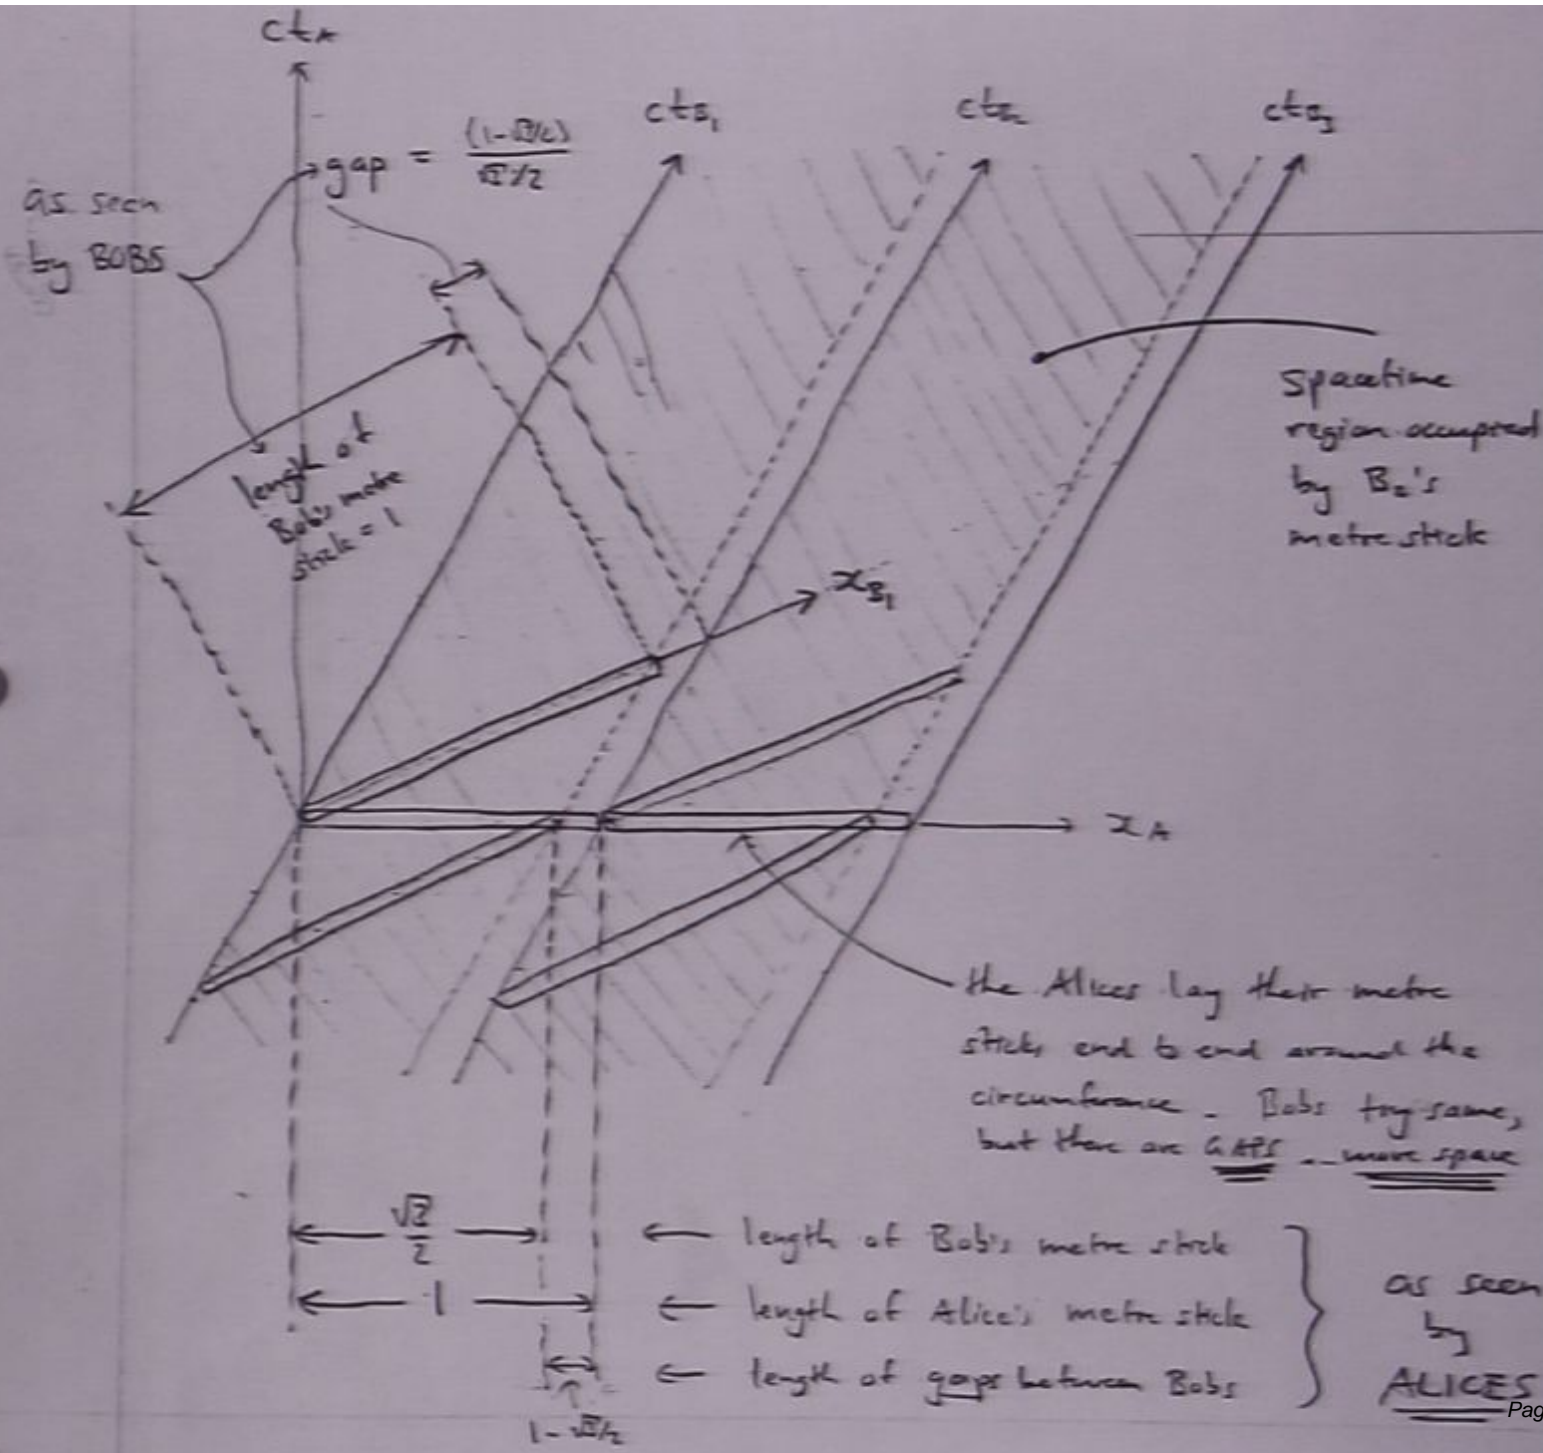 ct_A
ct_B₁
ct_B₂
ct_B₃
gap = (1-√2/2) / √2/2
as seen
by BOBS
length of
Bob's metre
stick = 1
spacetime
region occupied
by B₂'s
metre stick
x_B₁
x_A
the Alices lay their metre
sticks end to end around the
circumference. Bobs try same,
but there are GAPS -- more space
√2/2 ← length of Bob's metre stick
1 ← length of Alice's metre stick
← length of gaps between Bobs
as seen
by
ALICES
1-√2/2
Pag